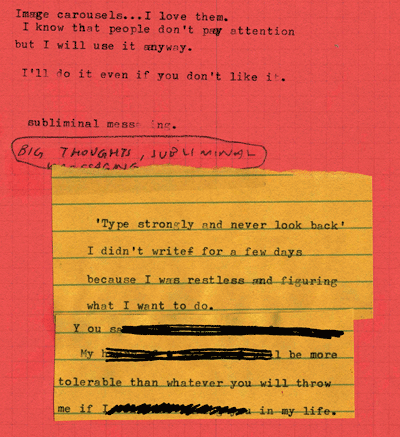 Image carousels...I love them.
I know that people don't pay attention
but I will use it anyway.
I'll do it even if you don't like it.
subliminal messaging.
BIG THOUGHTS, SUBLIMINAL
MESSAGING
'Type strongly and never look back'
I didn't writef for a few days
because I was restless and figuring
what I want to do.
You
My be more
tolerable than whatever you will throw
me if I in my life.